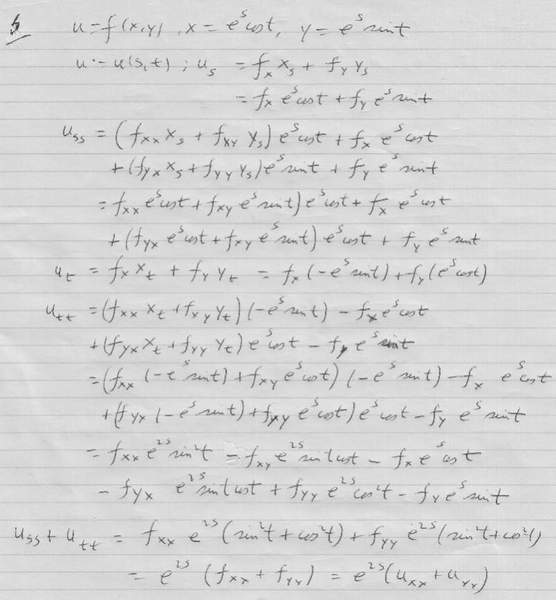 5 u = f(x,y), x = e^s cost, y = e^s sint
u = u(s,t) ; u_s = f_x x_s + f_y y_s
= f_x e^s cost + f_y e^s sint
u_ss = (f_xx x_s + f_xy y_s) e^s cost + f_x e^s cost
+ (f_yx x_s + f_yy y_s) e^s sint + f_y e^s sint
= f_xx e^s cost + f_xy e^s sint) e^s cost + f_x e^s cost
+ (f_yx e^s cost + f_xy e^s sint) e^s cost + f_y e^s sint
u_t = f_x x_t + f_y y_t = f_x (-e^s sint) + f_y (e^s cost)
u_tt = (f_xx x_t + f_xy y_t) (-e^s sint) - f_x e^s cost
+ (f_yx x_t + f_yy y_t) e^s cost - f_y e^s sint
= (f_xx (-e^s sint) + f_xy e^s cost) (-e^s sint) - f_x e^s cost
+ (f_yx (-e^s sint) + f_yy e^s cost) e^s cost - f_y e^s sint
= f_xx e^2s sin²t - f_xy e^2s sint cost - f_x e^s cost
- f_yx e^2s sint cost + f_yy e^2s cos²t - f_y e^s sint
u_ss + u_tt = f_xx e^2s (sin²t + cos²t) + f_yy e^2s (sin²t + cos²t)
= e^2s (f_xx + f_yy) = e^2s (u_xx + u_yy)